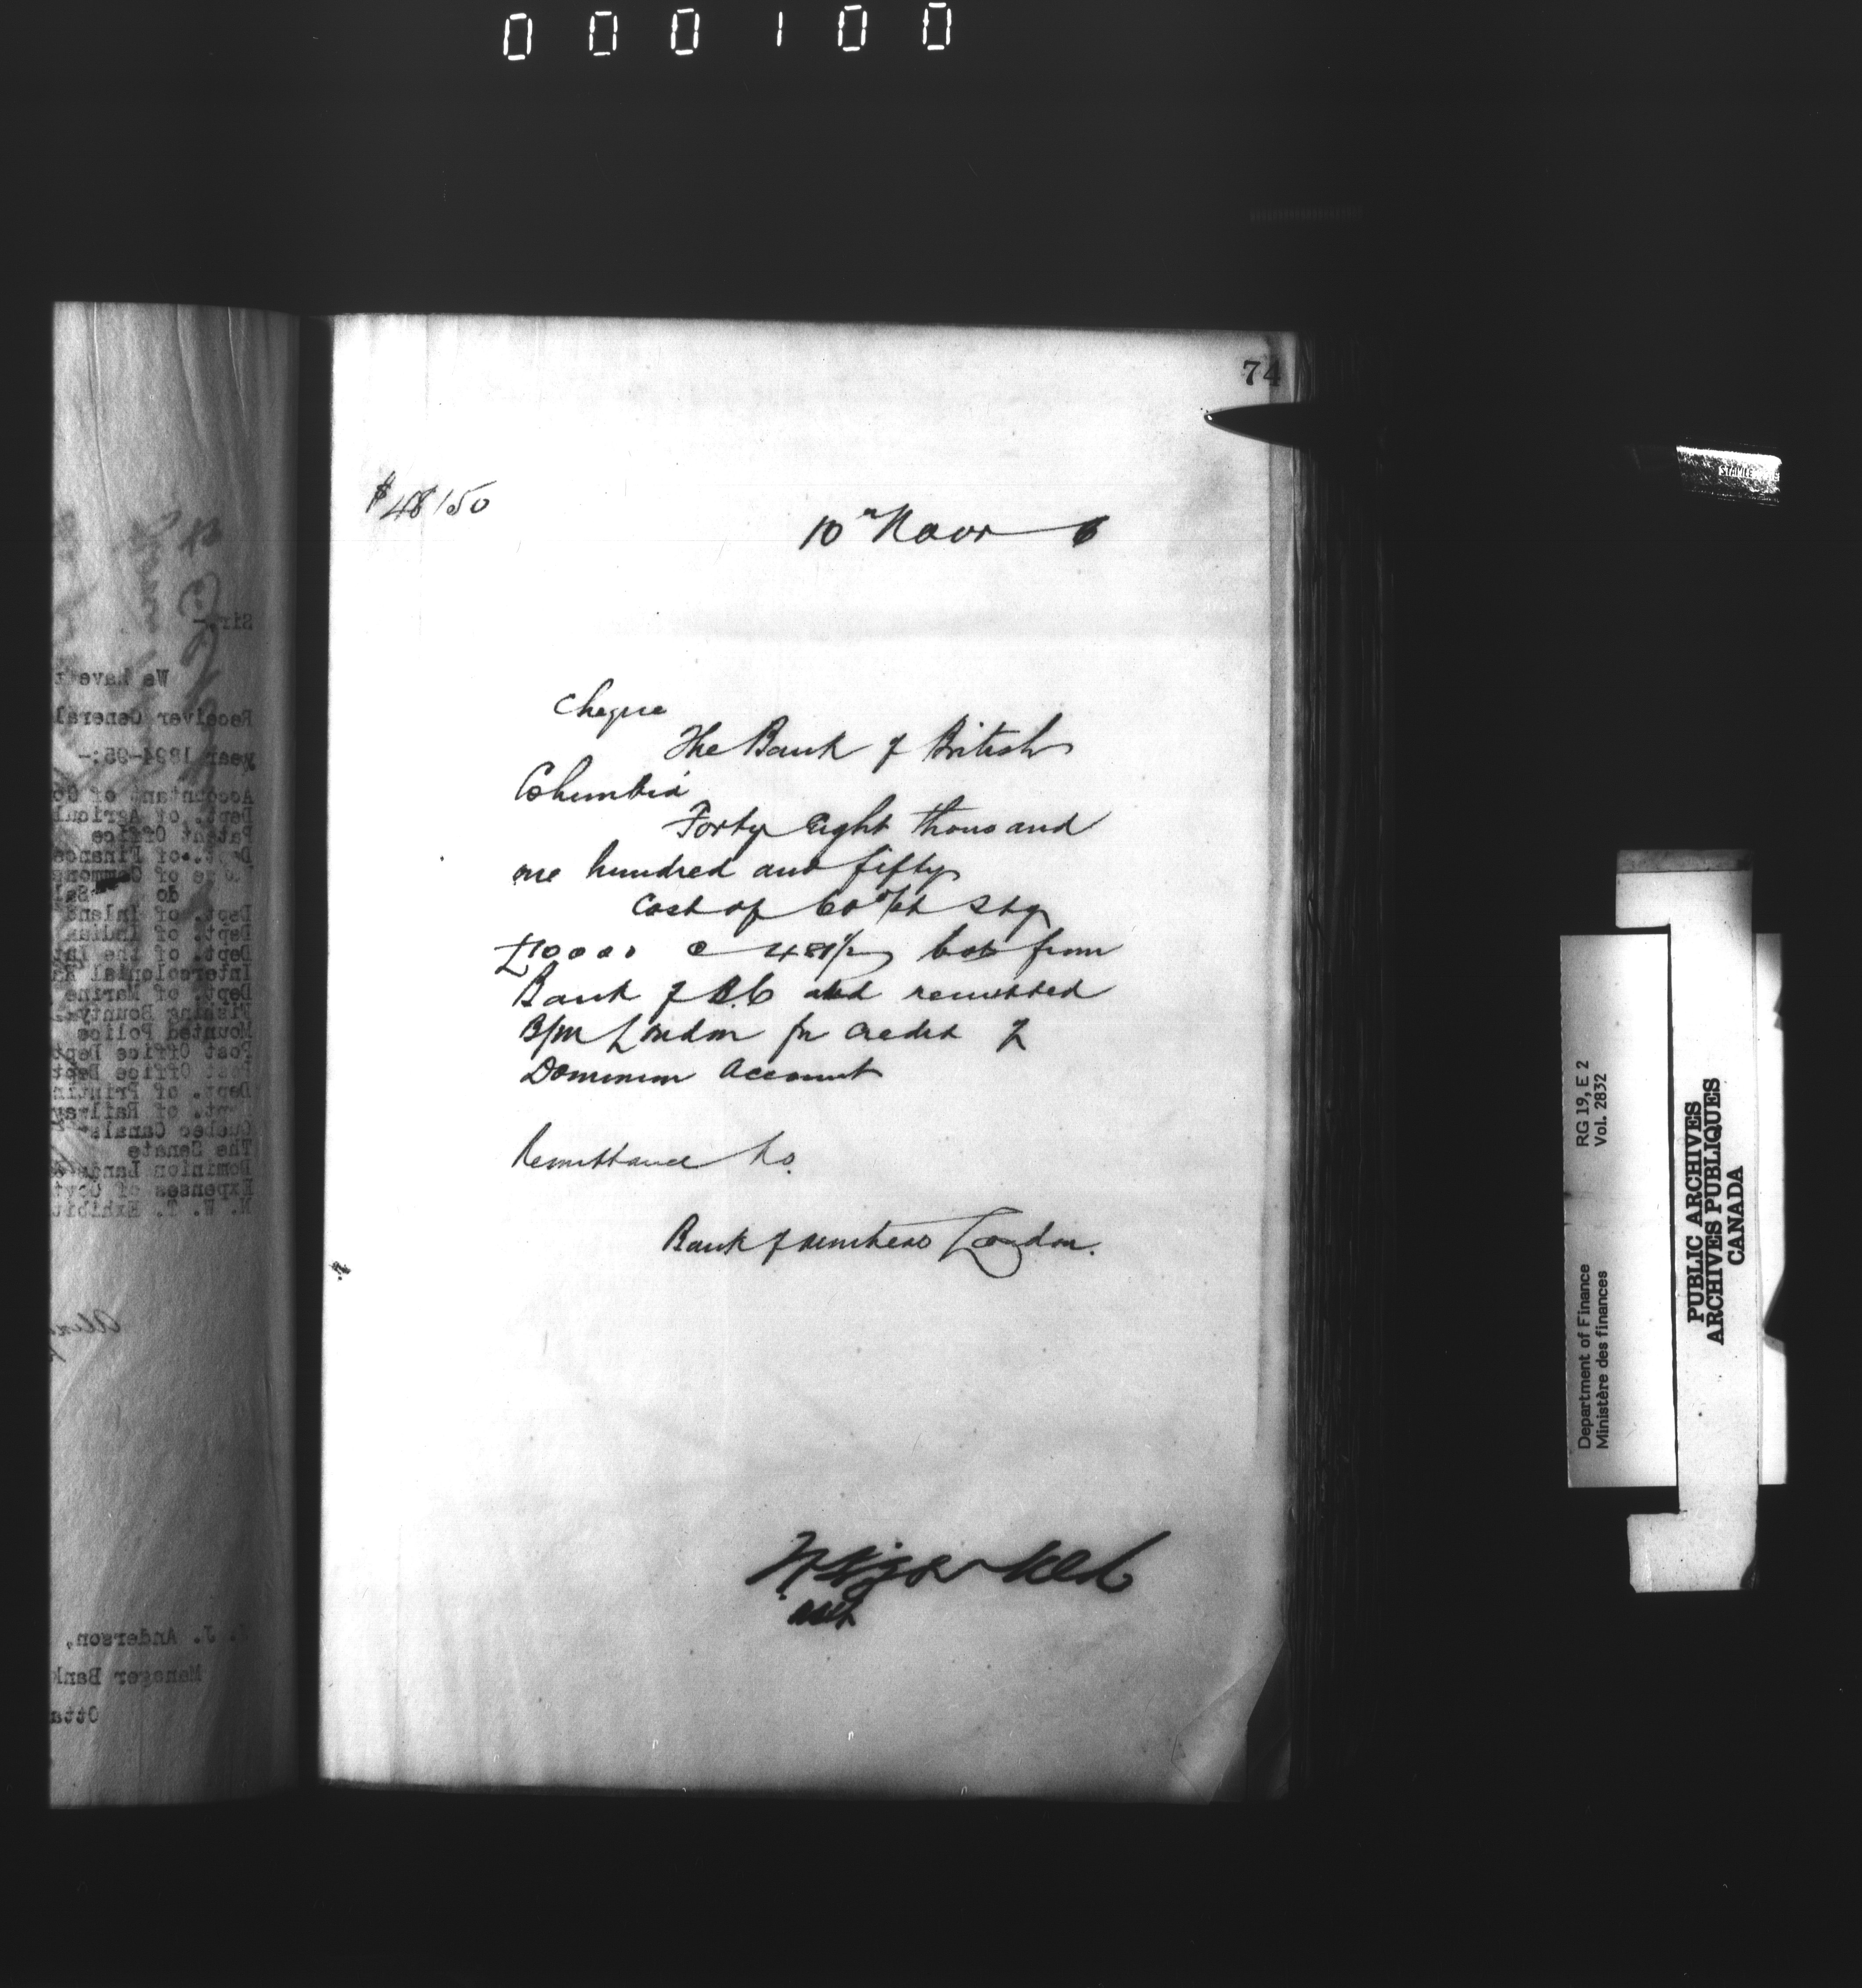 000100
74
$48150
10th Novr 6
Cheque
The Bank of British
Columbia
Forty Eight thousand
one hundred and fifty
Cost of 60 d/st Stg
£10000 @ 481½ bot from
Bank of B.C and remitted
B/M London for credit of
Dominion Account
Remittance to.
Bank of Montreal London.
asst
Sir,-
We have
Receiver General
year 1894-95:-
Accountant of
Dept. of
Patent Office
Dept. of Finance
of Commons
do
Dept. of Inland
Dept. of Indian
Dept. of the
Intercolonial
Dept. of Marine
Fishing Bounty
Mounted Police
Post Office Dept
Post Office Dept
Dept. of
Dept. of Railway
Quebec Canals
The Senate
Dominion Lands
Expenses of
N. W. T.
J. Anderson,
Manager Bank
RG 19, E 2
Vol. 2832
Department of Finance
Ministère des finances
PUBLIC ARCHIVES
ARCHIVES PUBLIQUES
CANADA